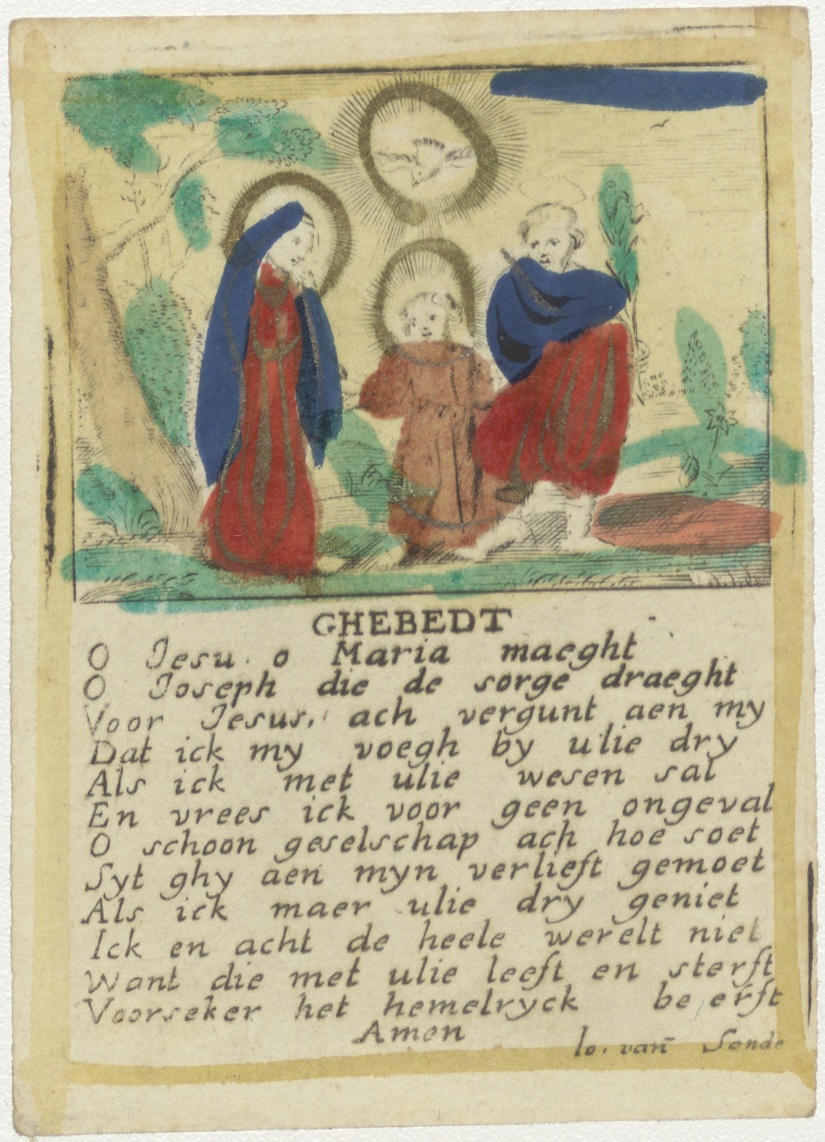 GHEBEDT
O Jesu o Maria maeght
O Joseph die de sorge draeght
Voor Jesus, ach vergunt aen my
Dat ick my voegh by ulie dry
Als ick met ulie wesen sal
En vrees ick voor geen ongeval
O schoon geselschap ach hoe soet
Syt ghy aen myn verlieft gemoet
Als ick maer ulie dry geniet
Ick en acht de heele werelt niet
Want die met ulie leeft en sterft
Voorseker het hemelryck be erft
Amen
Io. van Sande